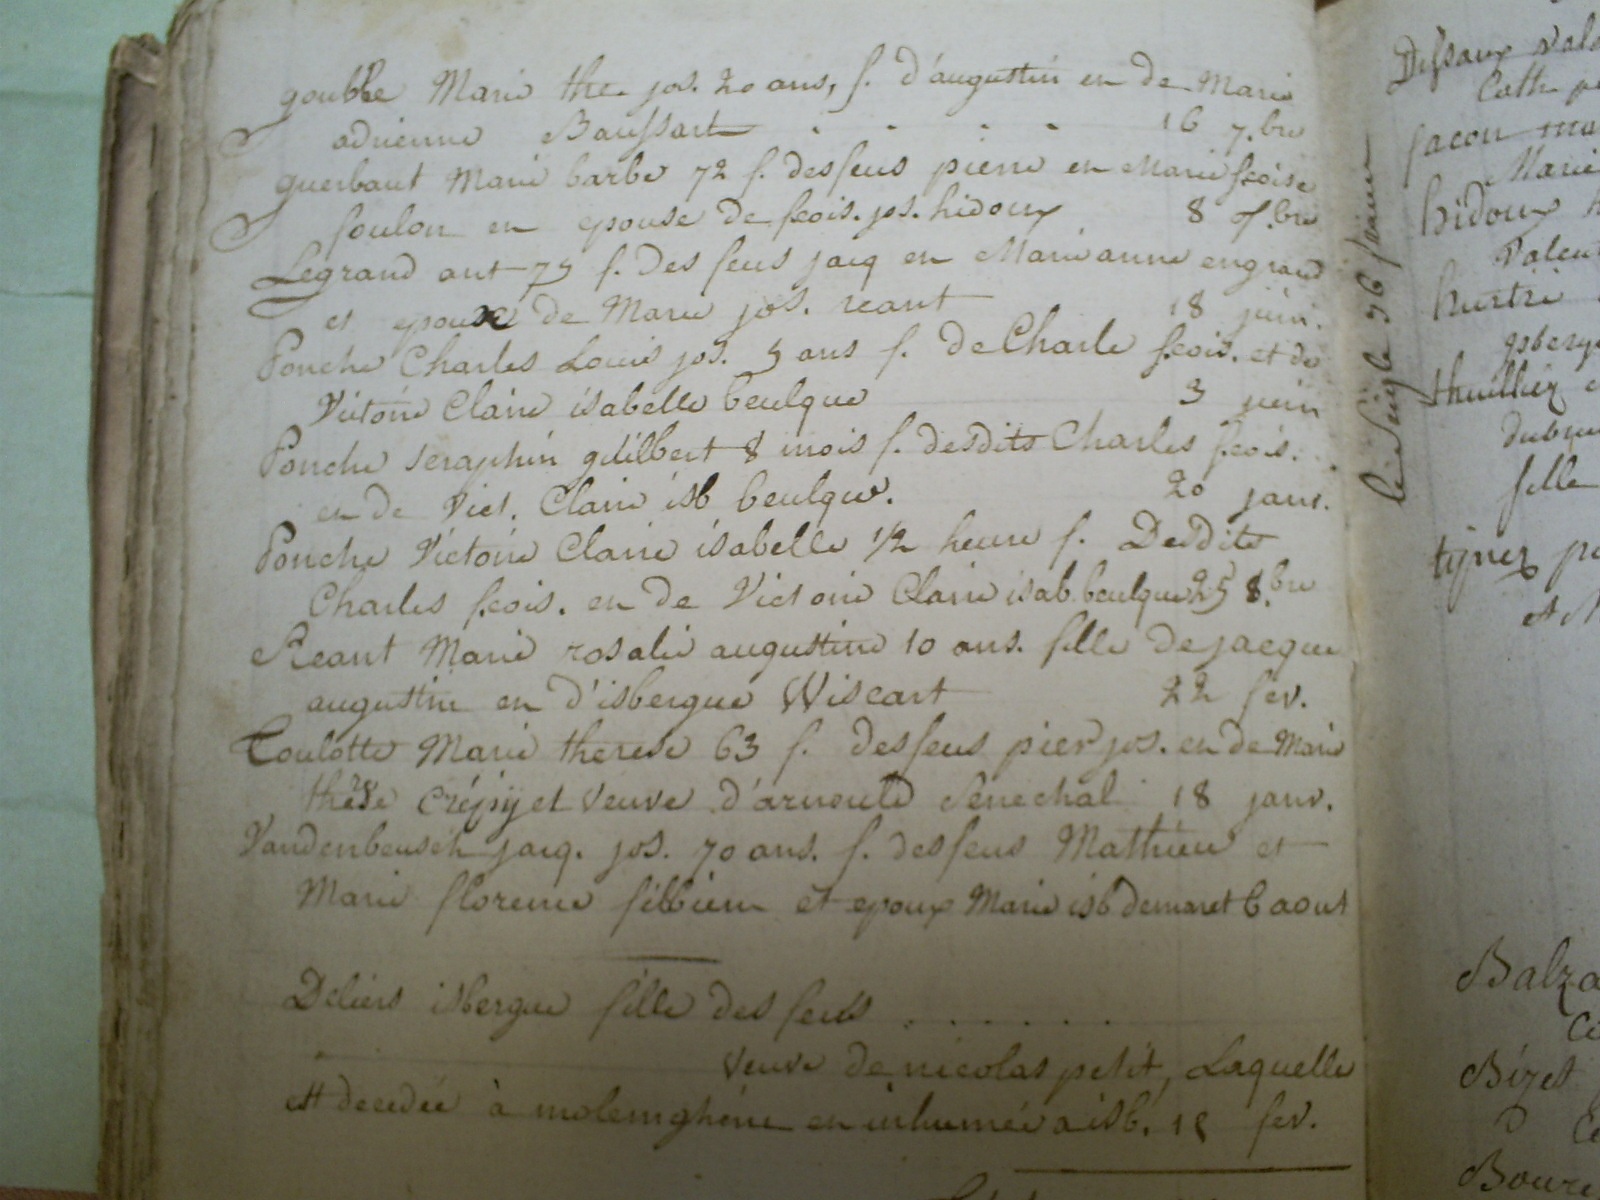 goubbe Marie the. jos. 20 ans, f. d'augustin en de Marie
adrienne Baussart . . . . 16 7.bre
guerbaut Marie barbe 72 f. des feus pierre en Marie fcoise
foulon en epouse de fcois. jos. hidoux 8 9.bre
Legrand ant 75 f. des feus jacq en Marie anne engrand
et epoux de Marie jos. reant 18 juin.
Ponche Charles Louis jos. 5 ans f. de Charle fcois. et de
Victoire Claire isabelle beulque 3 juin
Ponche seraphin gilibert 8 mois f. desdits Charles fcois.
en de Vict. Claire isb beulque. 20 janv.
Ponche Victoire Claire isabelle 1/2 heure f. Desdits
Charles fcois. en de Victoire Claire isab. beulque 25 8.bre
Reant Marie rosalie augustine 10 ans. fille de jacque
augustin en d'isbergue Wiscart 22 fev.
Toulotte Marie therese 63 f. des feus pier jos. en de Marie
therese Crépy et Veuve d'arnould Senechal 18 janv.
Vandenbeusch jacq. jos. 70 ans. f. des feus Mathieu et
Marie florence fillien et epoux Marie isb demaret 6 aout
Deliers isbergue fille des feus . . . . . . .
veuve de nicolas petit, Laquelle
est decedée à molemghem en inhumée a isb. 18 fev.
le siegle 36 f
Dessaux Vale
Cath pe
facon ma
Marie
hidoux h
Valent
hurtre
ysberg
thuillier
dubru
fille
tijner pe
et
Balza
Bizet
D